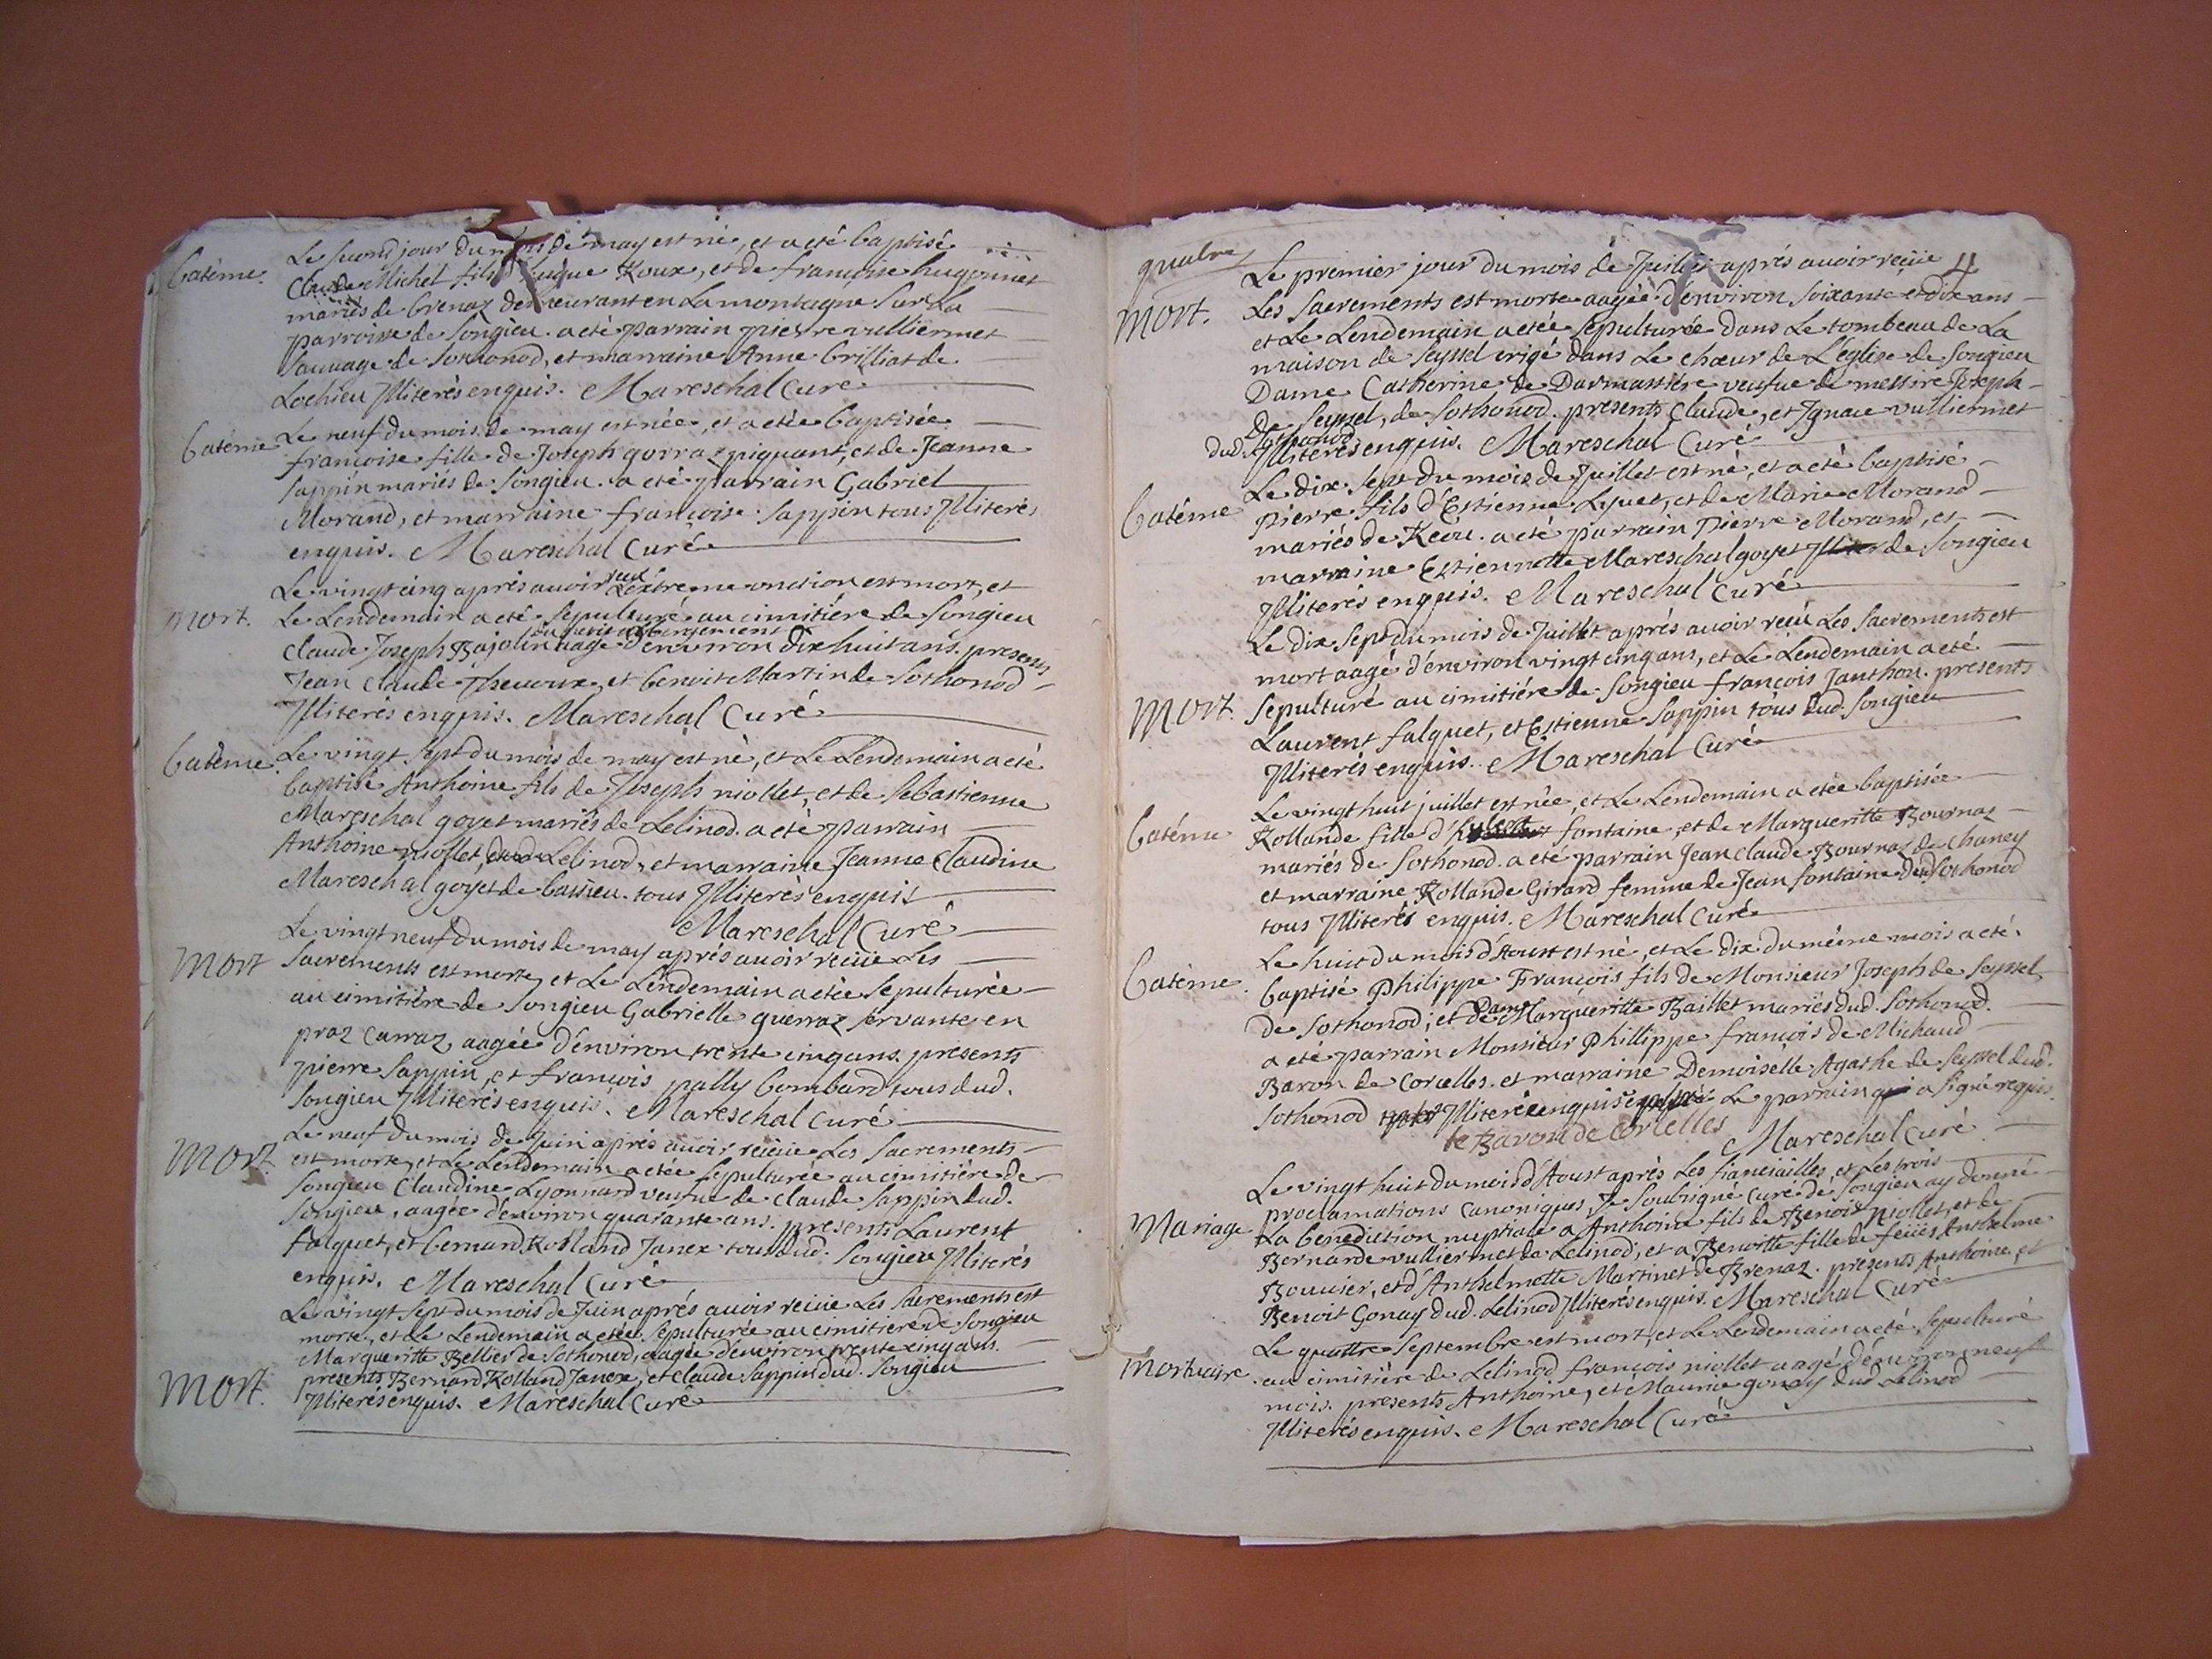 Batême.
Le second jour du mois de may est né, et a eté baptisé
Claude Michel fils d' Roux, et de françoise hugonnet
mariés de brenaz demeurant en La montagne sur La
parroisse de Songieu. a eté parrain pierre vulliermet
Sauvage de Sothonod, et marraine Anne brilliat de
Lochieu Jlliterés enquis. Mareschal Curé
Batême
Le neuf du mois de may est née, et a etée baptisée
francoise fille de Joseph gorraz piquant, et de Jeanne
Sappin mariés de Songieu. a eté parrain Gabriel
Morand, et marraine françoise Sappin tous Jlliterés
enquis. Mareschal Curé
Mort.
Le vingt cinq aprés avoir reçeu L'extreme onction est mort, et
Le Lendemain a eté sepulturé au cimitiére de Songieu
Claude Joseph Bajolin aagé d'environ dix huit ans. presents
Jean Claude Thevoux, et benoit Martin de Sothonod
Jlliterés enquis. Mareschal Curé
Batême.
Le vingt sept du mois de may est né, et Le Lendemain a eté
baptisé Anthoine fils de Joseph niollet, et de Sebastienne
Mareschal goyet mariés de Lelinod. a eté parrain
Anthoine niollet, dud. Lelinod, et marraine Jeanne Claudine
Mareschal goyet de bassieu. tous Jlliterés enquis
Mareschal Curé
Mort
Le vingt neuf du mois de may aprés avoir reciie Les
Sacrements est morte, et Le Lendemain a etée sepulturée
au cimitiére de Songieu Gabrielle guerraz servante en
praz Carraz, aagée d'environ trente cinq ans. presents
pierre Sappin, et françois pally bombard tous dud.
Songieu Jlliterés enquis. Mareschal Curé
Mort.
Le neuf du mois de Juin aprés avoir reciie Les Sacrements
est morte, et Le Lendemain a etée sepulturée au cimitiére de
Songieu Claudine Lyonnard veufue de Claude Sappin dud.
Songieu, aagée d'environ quarante ans. presents Laurent
falquet, et bernard Rolland Janex tous dud. Songieu Jlliterés
enquis. Mareschal Curé
Mort.
Le vingt sept du mois de Juin aprés avoir reciie Les Sacrements est
morte, et Le Lendemain a etée sepulturée au cimitiere de Songieu
Margueritte Bellier de Sothonod, aagée d'environ trente cinq ans.
presents Bernard Rolland Janex, et Claude Sappin dud. Songieu
Jlliterés enquis. Mareschal Curé
quatre
4
Mort.
Le premier jour du mois de Juillet aprés avoir reçiie
Les Sacrements est morte aagée d'environ soixante et dix ans
et Le Lendemain a etée sepulturée dans Le tombeau de La
maison de Seyssel erigé dans Le chœur de L'église de Songieu
Dame Catherine de Darmassiére veufue de messire Joseph
De Seyssel, de Sothonod. presents Claude, et Jgnace vulliermet
dud. Sothonod
Jlliterés enquis. Mareschal Curé
Batême
Le dix sept du mois de Juillet est né, et a eté baptisé
pierre fils d'Estienne Lyuet, et de Marie Morand
mariés de a eté parrain pierre Morand, et
marraine Estiennette Mareschal goyet de Songieu
Jlliterés enquis. Mareschal Curé
Mort.
Le dix sept du mois de Juillet aprés avoir reciu Les Sacrements est
mort aagé d'environ vingt cinq ans, et Le Lendemain a eté
sepulturé au cimitiére de Songieu françois Janthon. presents
Laurent falquet, et Estienne Sappin tous dud. Songieu
Jlliterés enquis. Mareschal Curé
Batême
Le vingt huit juillet est née, et Le Lendemain a etée baptisée
Rollande fille d' fontaine, et de Margueritte Bournaz
mariés de Sothonod. a eté parrain Jean Claude Bournaz de Chaney
et marraine Rollande Girard femme de Jean fontaine dud. Sothonod
tous Jlliterés enquis. Mareschal Curé
Batême.
Le huit du mois d'Aoust est né, et Le dix du méme mois a eté
baptisé Philippe François fils de Monsieur Joseph de Seyssel
de Sothonod; et de Dame Margueritte Baillet mariés dud. Sothonod.
a eté parrain Monsieur Phillippe françois de Michaud
Baron de Corcelles. et marraine Demoiselle Agathe de Seyssel dud.
Sothonod Jlliterée enquise Le parrain a signé requis.
le Baron de Corcelles
Mareschal Curé
Mariage
Le vingt huit du mois d'Aoust aprés Les fianciailles, et Les trois
proclamations canoniques, Je soubsigné curé de Songieu ay donné
La benediction nuptiale a Anthoine fils de Benoit niollet, et de
Bernarde vulliermet de Lelinod, et a Benoitte fille de feuës Anthelme
Bouvier, et d'Anthelmette Martinet de Brenaz. presents Anthoine, et
Benoit Gonay dud. Lelinod Jlliterés enquis. Mareschal Curé
Mortuaire.
Le quattre Septembre est mort, et Le Lendemain a eté sepulturé
au cimitiére de Lelinod françois niollet aagé d'environ neuf
mois. presents Anthoine, et Maurice gonay dud. Lelinod
Jlliterés enquis. Mareschal Curé